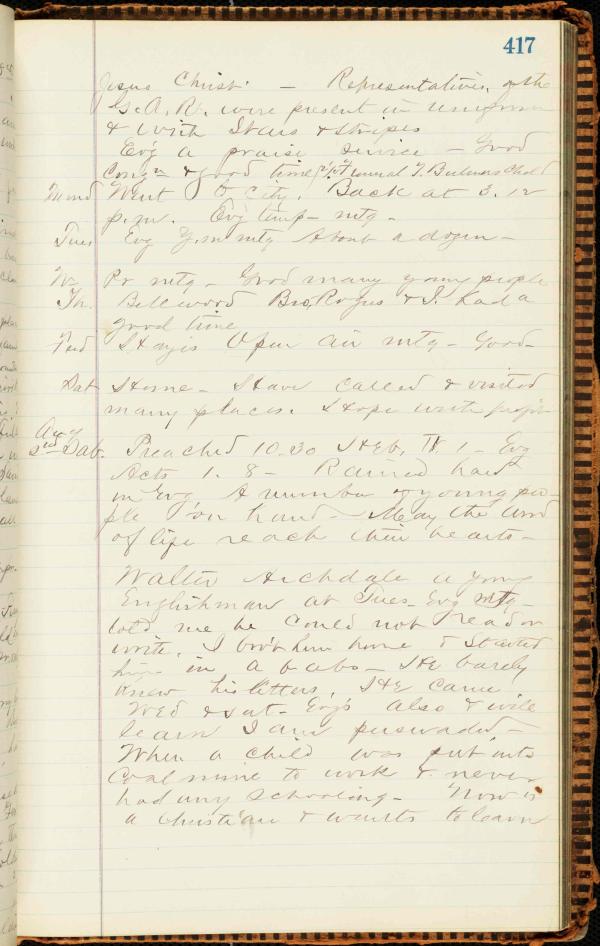 417
Jesus Christ. — Representatives of the
G. A. R. were present in uniform
& with Stars & stripes
Evg a praise service — Good
Congn & good time Funeral T. child
Mond Went to City. Back at 3.12
p.m. Evg temp- mtg.
Tues Evg Y.m mtg About a dozen —
W. Pr mtg — Good many young people
Th. Bellwood Bro. Rogers & I. had a
good time
Frid Open air mtg — Good —
Sat Home — Have called & visited
many places. Hope with profit
Aug
2nd Sab. Preached 10.30 Heb. 1 — Evg
Acts 1. 8 — Rained hard
in Evg. A number of young peo-
ple on hand — May the word
of life reach their hearts —
Walter Archdale a young
Englishman at Tues. Evg mtg —
told me he could not read or
write. I bro't him home & started
him in a b abs — He barely
knew his letters. He came
Wed & sat — Evg's also & will
learn I am persuaded —
When a child was put into
Coal mine to work & never
had any schooling — Now is
a christian & wants to learn